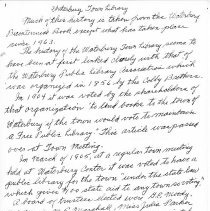 Waterbury Town Library
Much of this history is taken from the Waterbury
Bicentennial Book except what has taken place
since 1963.
The history of the Waterbury Town Library seems to
have been at first linked closely with that of
the Waterbury Public Library Association which
was organized in 18 by the Colby Brothers.
In 1904 it was voted by the shareholders of
that organization "to lend books to the town if
Waterbury if the town would vote to maintain
a Free Public Library". This article was passed
over at Town Meeting.
In March of 1905, at a regular town meeting
held at Waterbury Center it was voted to have a
public library for the Town "under the state law
which gives $100 state aid to any town voting"
A board of trustees elected were
Marshall, Miss Julia Parker